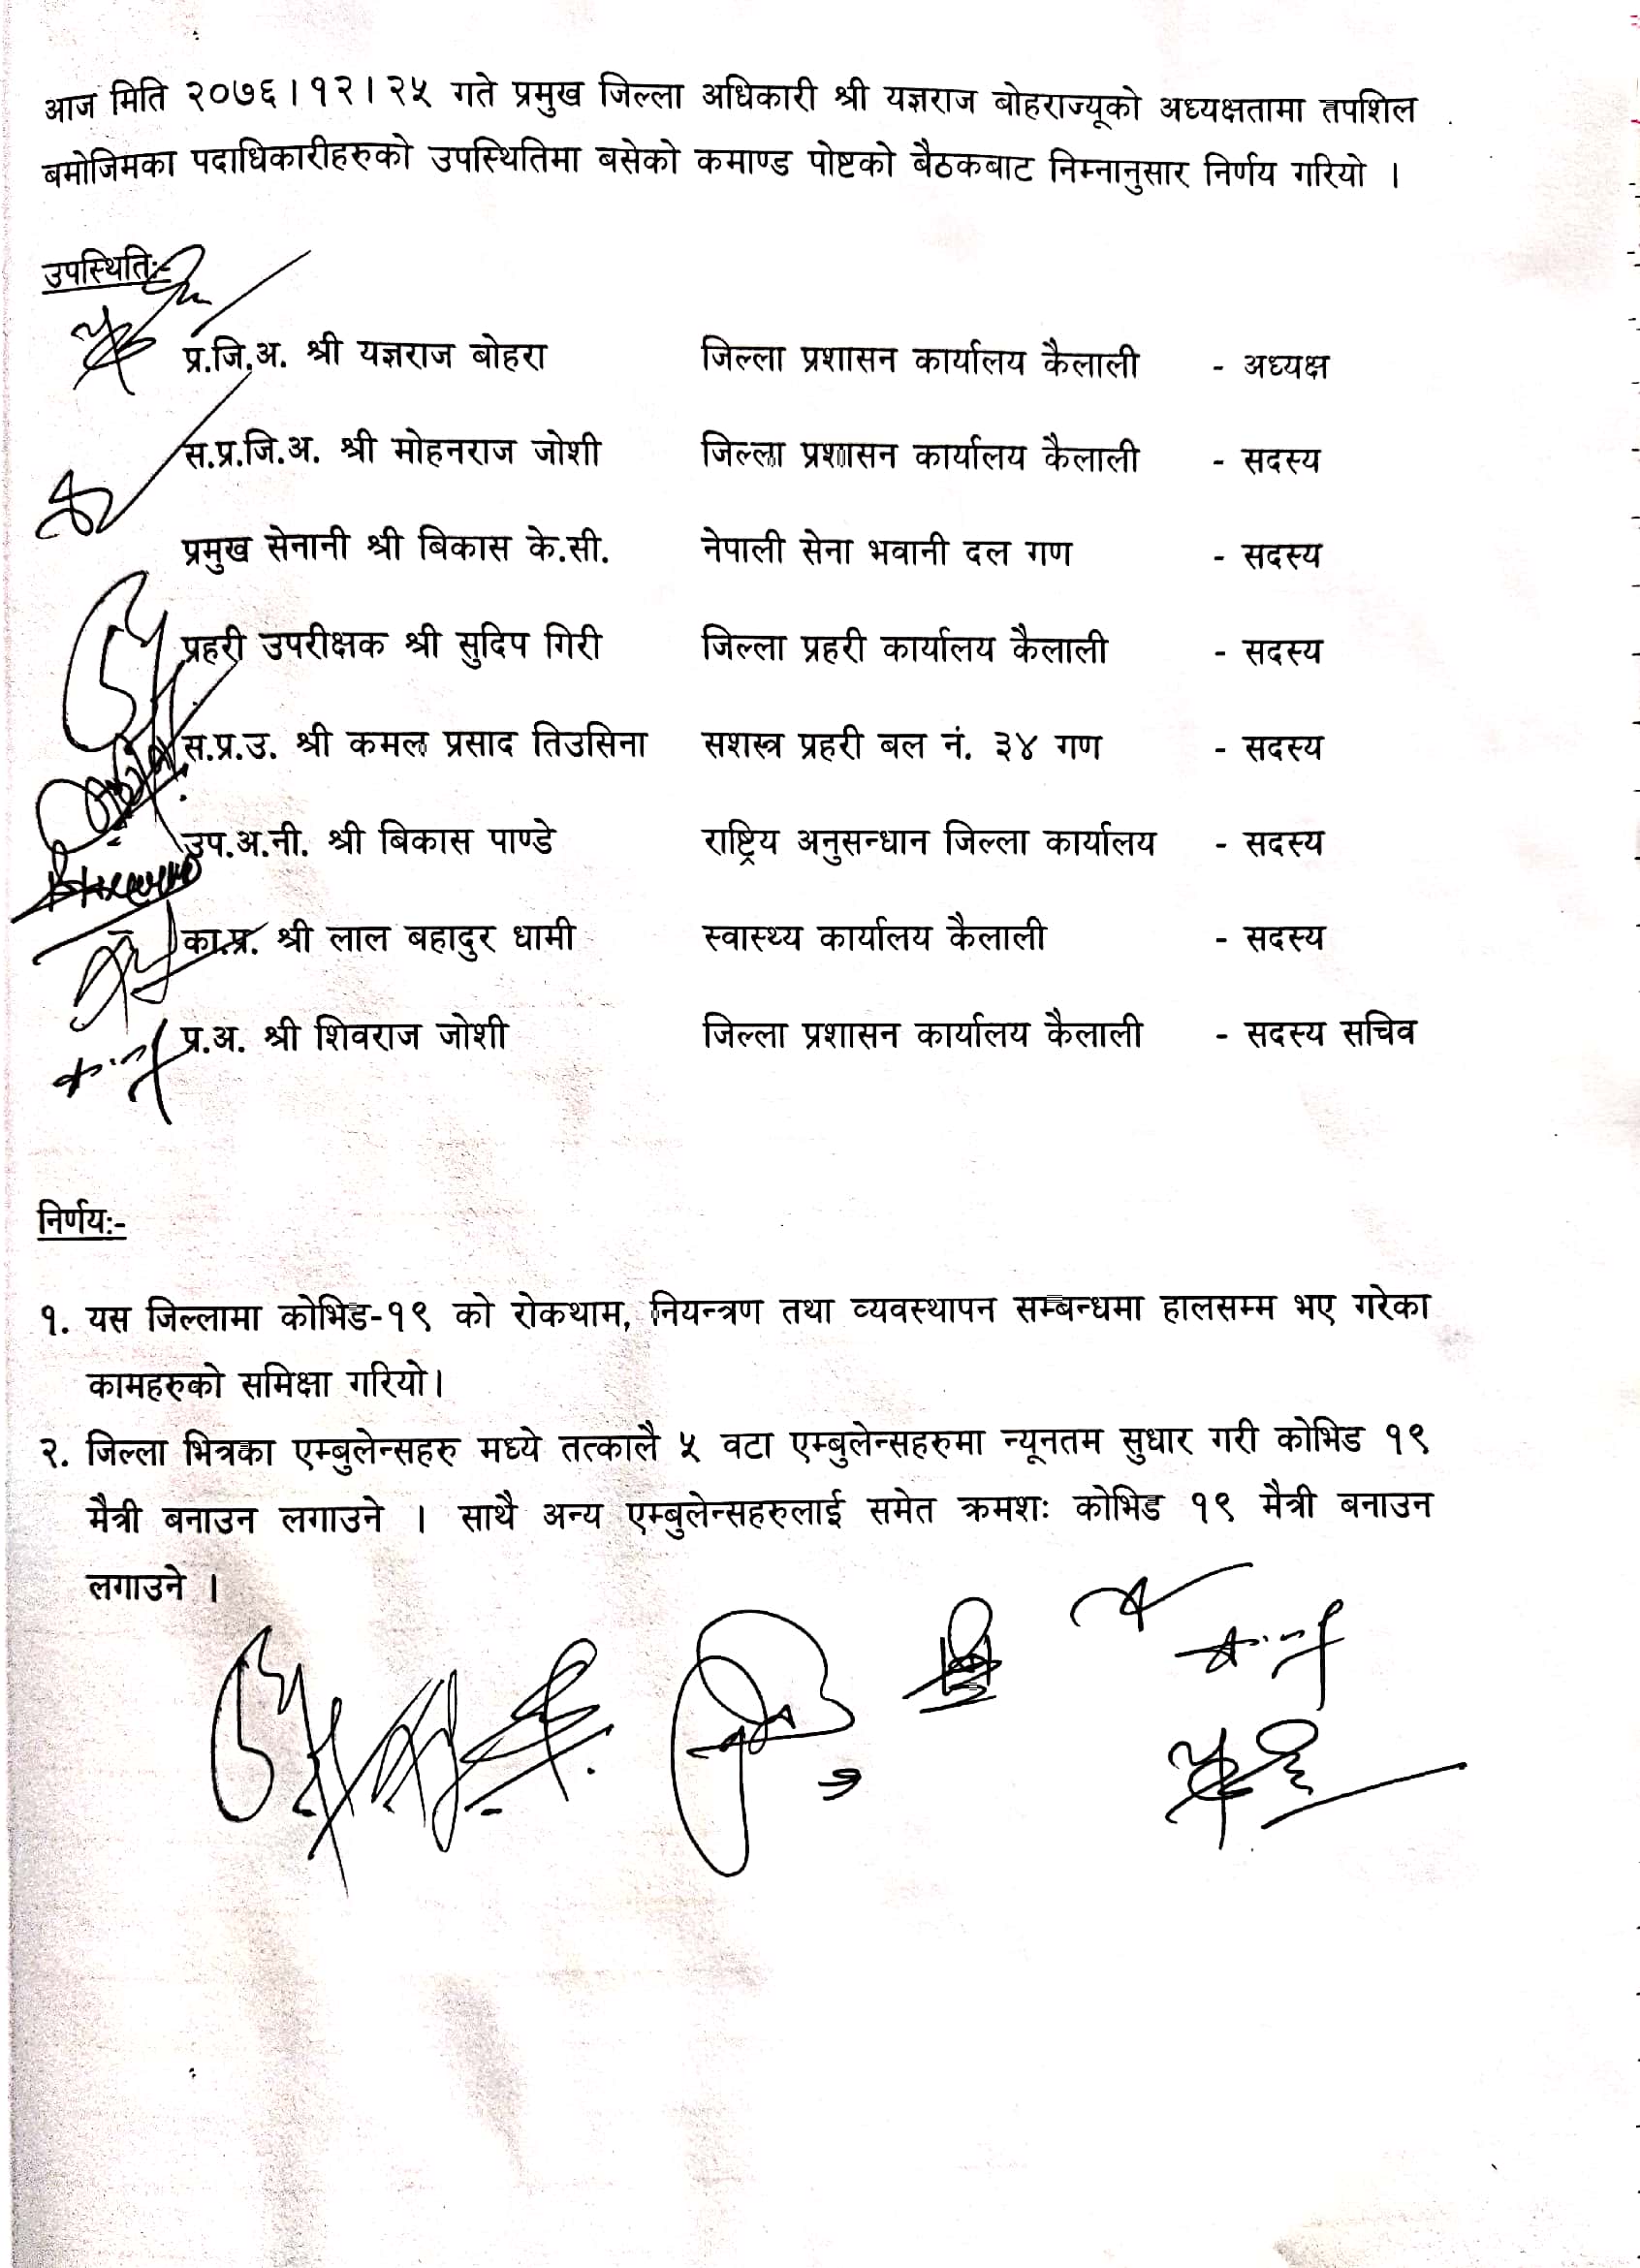 आज मिति २०७६।१२।२५ गते प्रमुख जिल्ला अधिकारी श्री यज्ञराज बोहराज्यूको अध्यक्षतामा तपशिल
बमोजिमका पदाधिकारीहरुको उपस्थितिमा बसेको कमाण्ड पोष्टको बैठकबाट निम्नानुसार निर्णय गरियो ।
उपस्थितिः-
प्र.जि.अ. श्री यज्ञराज बोहरा जिल्ला प्रशासन कार्यालय कैलाली - अध्यक्ष
स.प्र.जि.अ. श्री मोहनराज जोशी जिल्ला प्रशासन कार्यालय कैलाली - सदस्य
प्रमुख सेनानी श्री बिकास के.सी. नेपाली सेना भवानी दल गण - सदस्य
प्रहरी उपरीक्षक श्री सुदिप गिरी जिल्ला प्रहरी कार्यालय कैलाली - सदस्य
स.प्र.उ. श्री कमल प्रसाद तिउसिना सशस्त्र प्रहरी बल नं. ३४ गण - सदस्य
उप.अ.नी. श्री बिकास पाण्डे राष्ट्रिय अनुसन्धान जिल्ला कार्यालय - सदस्य
का.प्र. श्री लाल बहादुर धामी स्वास्थ्य कार्यालय कैलाली - सदस्य
प्र.अ. श्री शिवराज जोशी जिल्ला प्रशासन कार्यालय कैलाली - सदस्य सचिव
निर्णयः-
१. यस जिल्लामा कोभिड-१९ को रोकथाम, नियन्त्रण तथा व्यवस्थापन सम्बन्धमा हालसम्म भए गरेका
कामहरुको समिक्षा गरियो।
२. जिल्ला भित्रका एम्बुलेन्सहरु मध्ये तत्कालै ५ वटा एम्बुलेन्सहरुमा न्यूनतम सुधार गरी कोभिड १९
मैत्री बनाउन लगाउने । साथै अन्य एम्बुलेन्सहरुलाई समेत क्रमशः कोभिड १९ मैत्री बनाउन
लगाउने ।